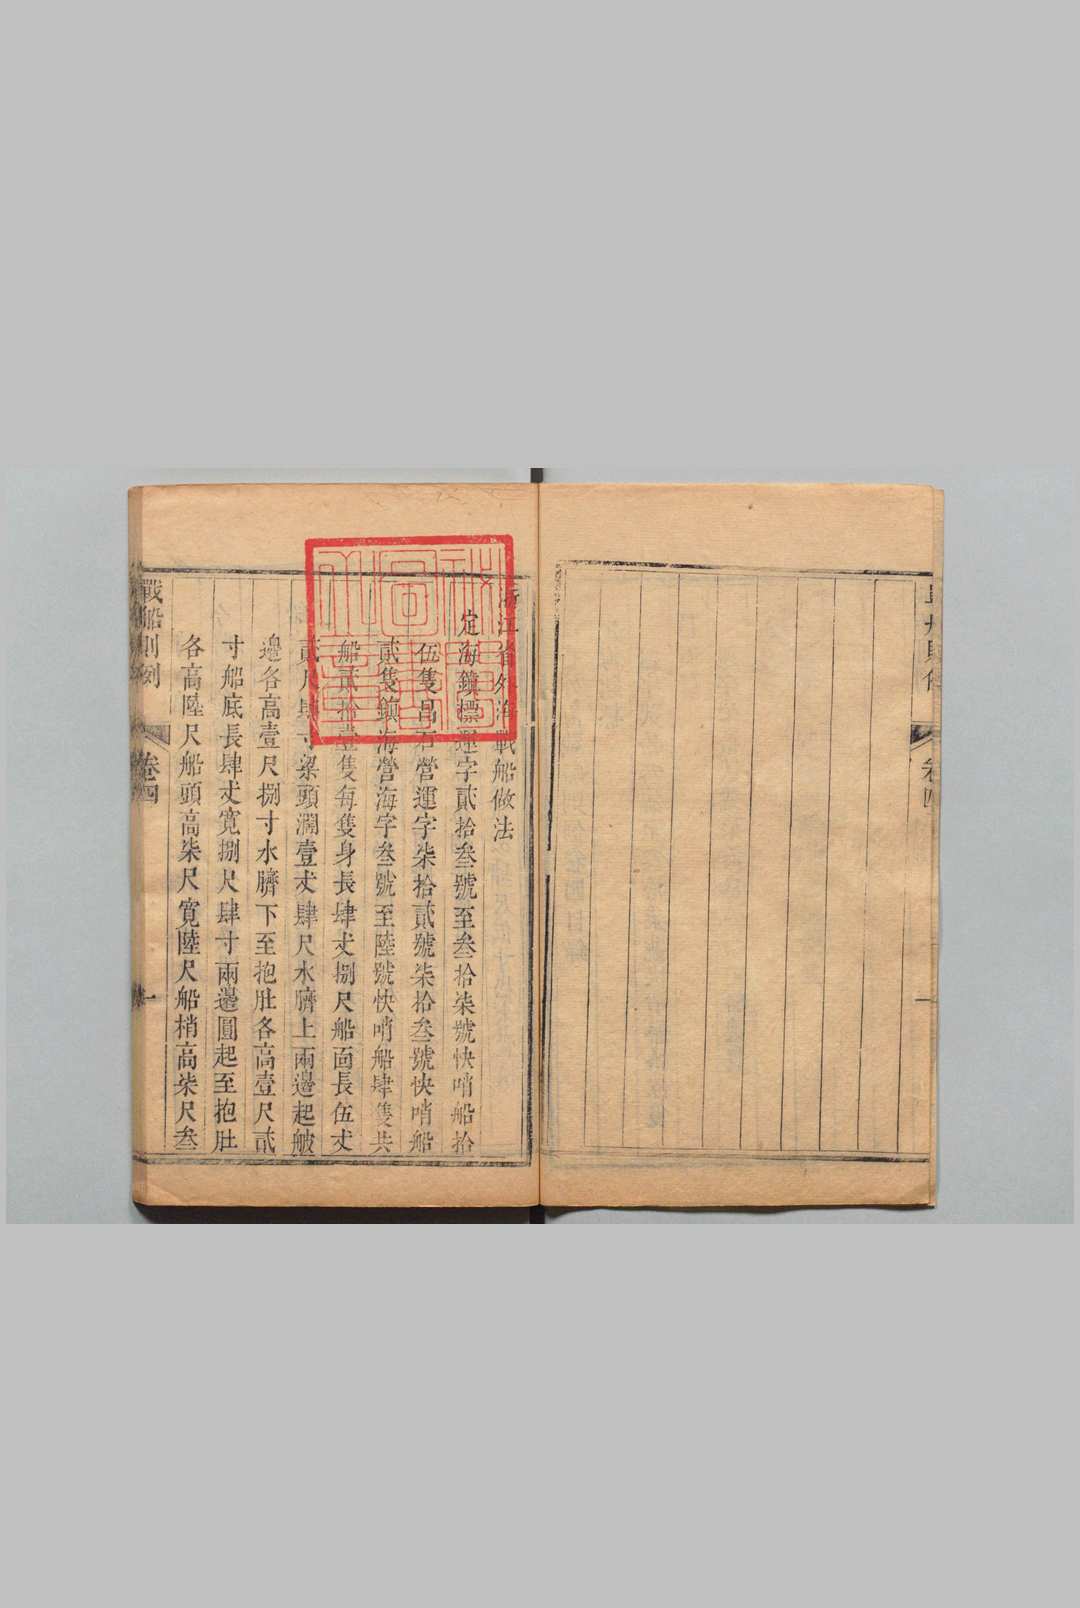 浙江省外海戰船做法
定海鎮標運字貳拾叁號至叁拾柒號快哨船拾
伍隻昌石營運字柒拾貳號柒拾叁號快哨船
貳隻鎮海營海字叁號至陸號快哨船肆隻共
船貳拾壹隻每隻身長肆丈捌尺船面長伍丈
貳尺肆寸梁頭濶壹丈肆尺水臍上兩邊起䑨
邊各高壹尺捌寸水臍下至抱肚各高壹尺貳
寸船底長肆丈寬捌尺肆寸兩邊圓起至抱肚
各高陸尺船頭高柒尺寬陸尺船梢高柒尺叁
戰船則例
卷四
一